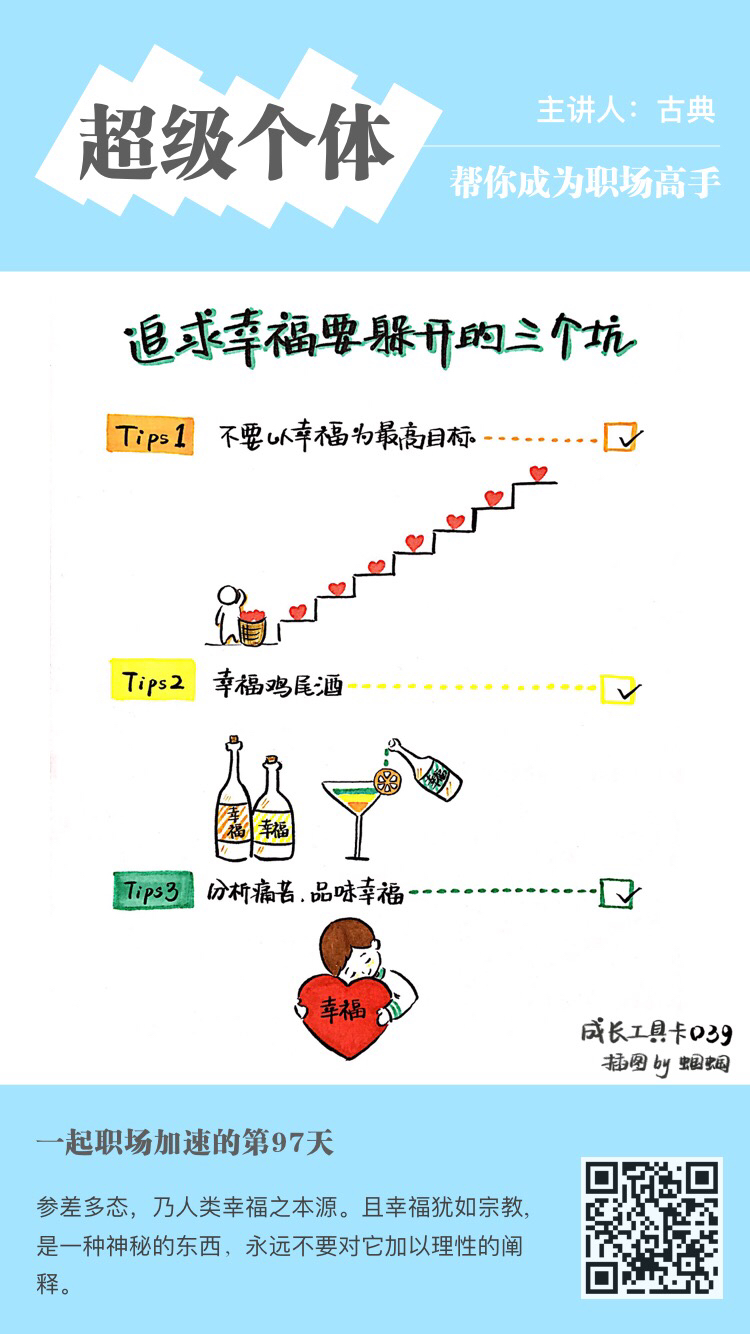 超级个体
主讲人：古典
帮你成为职场高手
追求幸福要躲开的三个坑
Tips1 不要以幸福为最高目标。
Tips2 幸福鸡尾酒
幸福
幸福
幸福
Tips3 分析痛苦.品味幸福
幸福
成长工具卡039
插图by 蝈蝈
一起职场加速的第97天
参差多态，乃人类幸福之本源。且幸福犹如宗教,
是一种神秘的东西，永远不要对它加以理性的阐
释。